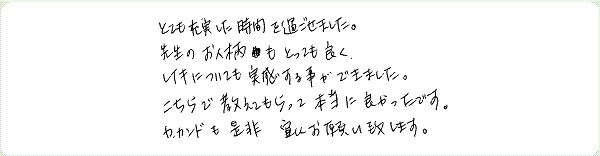 とても充実した時間を過ごせました。
先生のお人柄もとっても良く、
レイキについても実感する事ができました。
こちらで教えてもらって本当に良かったです。
セカンドも是非宜しくお願い致します。